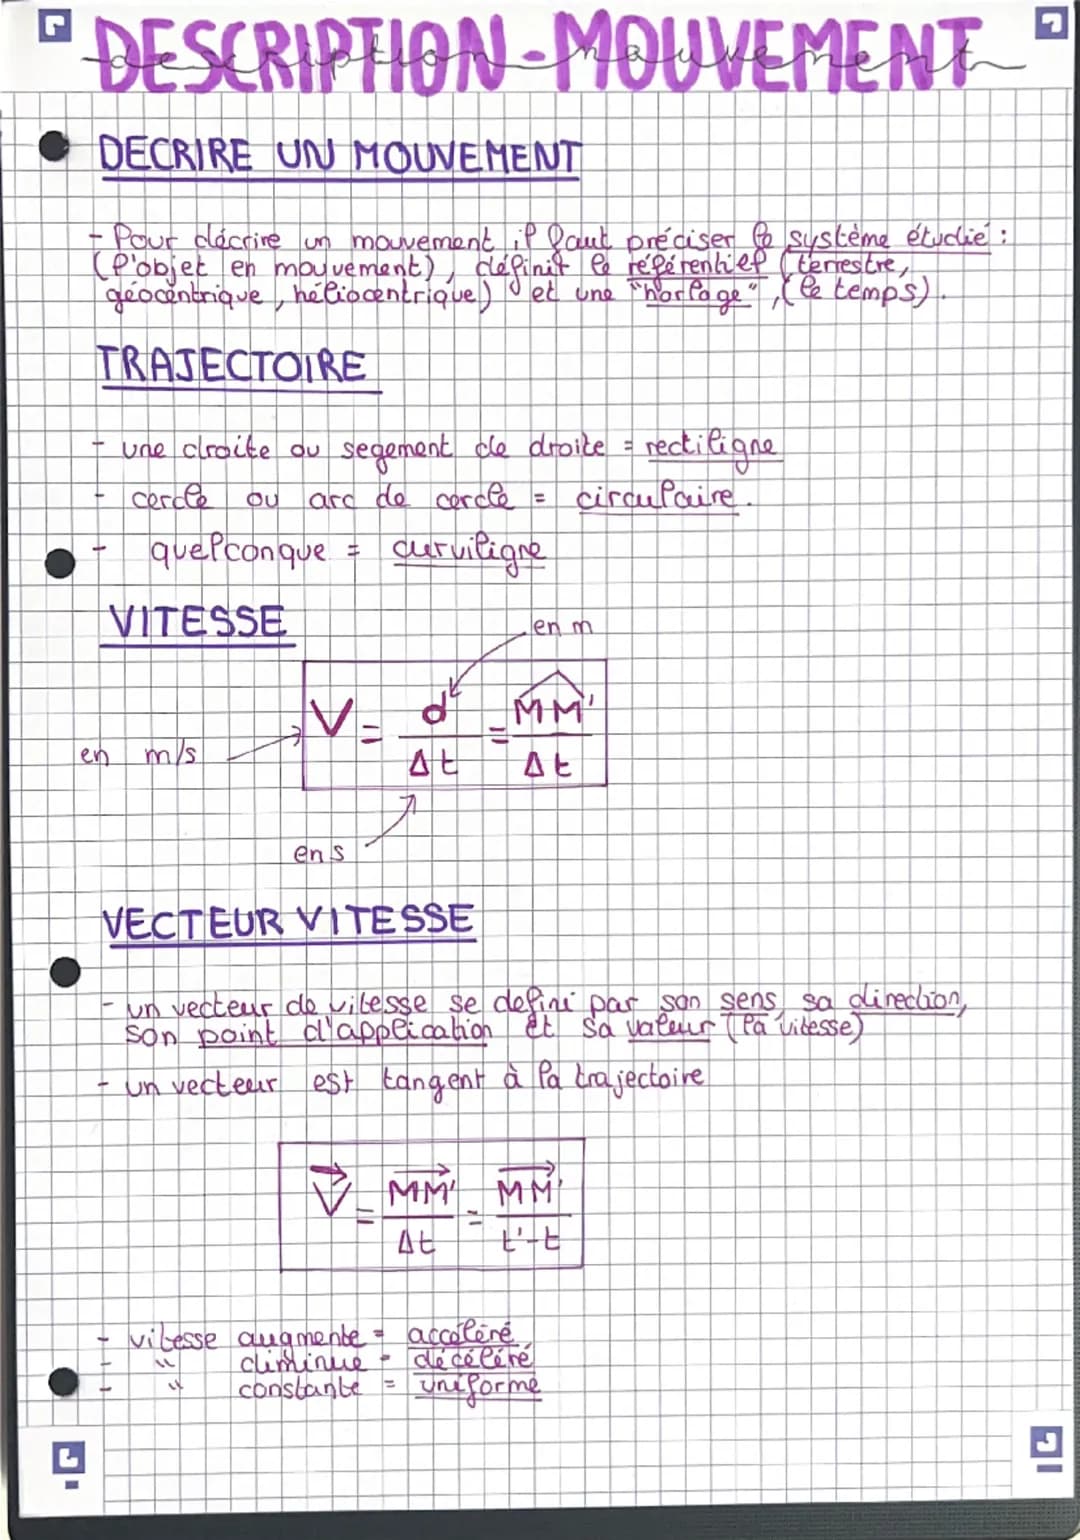 DESCRIPTION-MOUVEMENT
description mouvement
DECRIRE UN MOUVEMENT
- Pour décrire un mouvement il faut préciser le système étudié :
(l'objet en mouvement), définit le référentiel (terrestre,
géocentrique, héliocentrique) et une "horloge", (le temps).
TRAJECTOIRE
- une droite ou segement de droite = rectiligne
- cercle ou arc de cercle = circulaire.
- quelconque = curviligne
VITESSE
en m
V = d/Δt = MM'/Δt
en m/s
en s
VECTEUR VITESSE
- un vecteur de vitesse se defini par son sens, sa direction,
son point d'application et sa valeur (la vitesse)
- un vecteur est tangent à la trajectoire
V⃗ = MM'⃗/Δt = MM'⃗/t'-t
- vitesse augmente = accéléré
- " diminue - décéléré
- " constante = uniforme